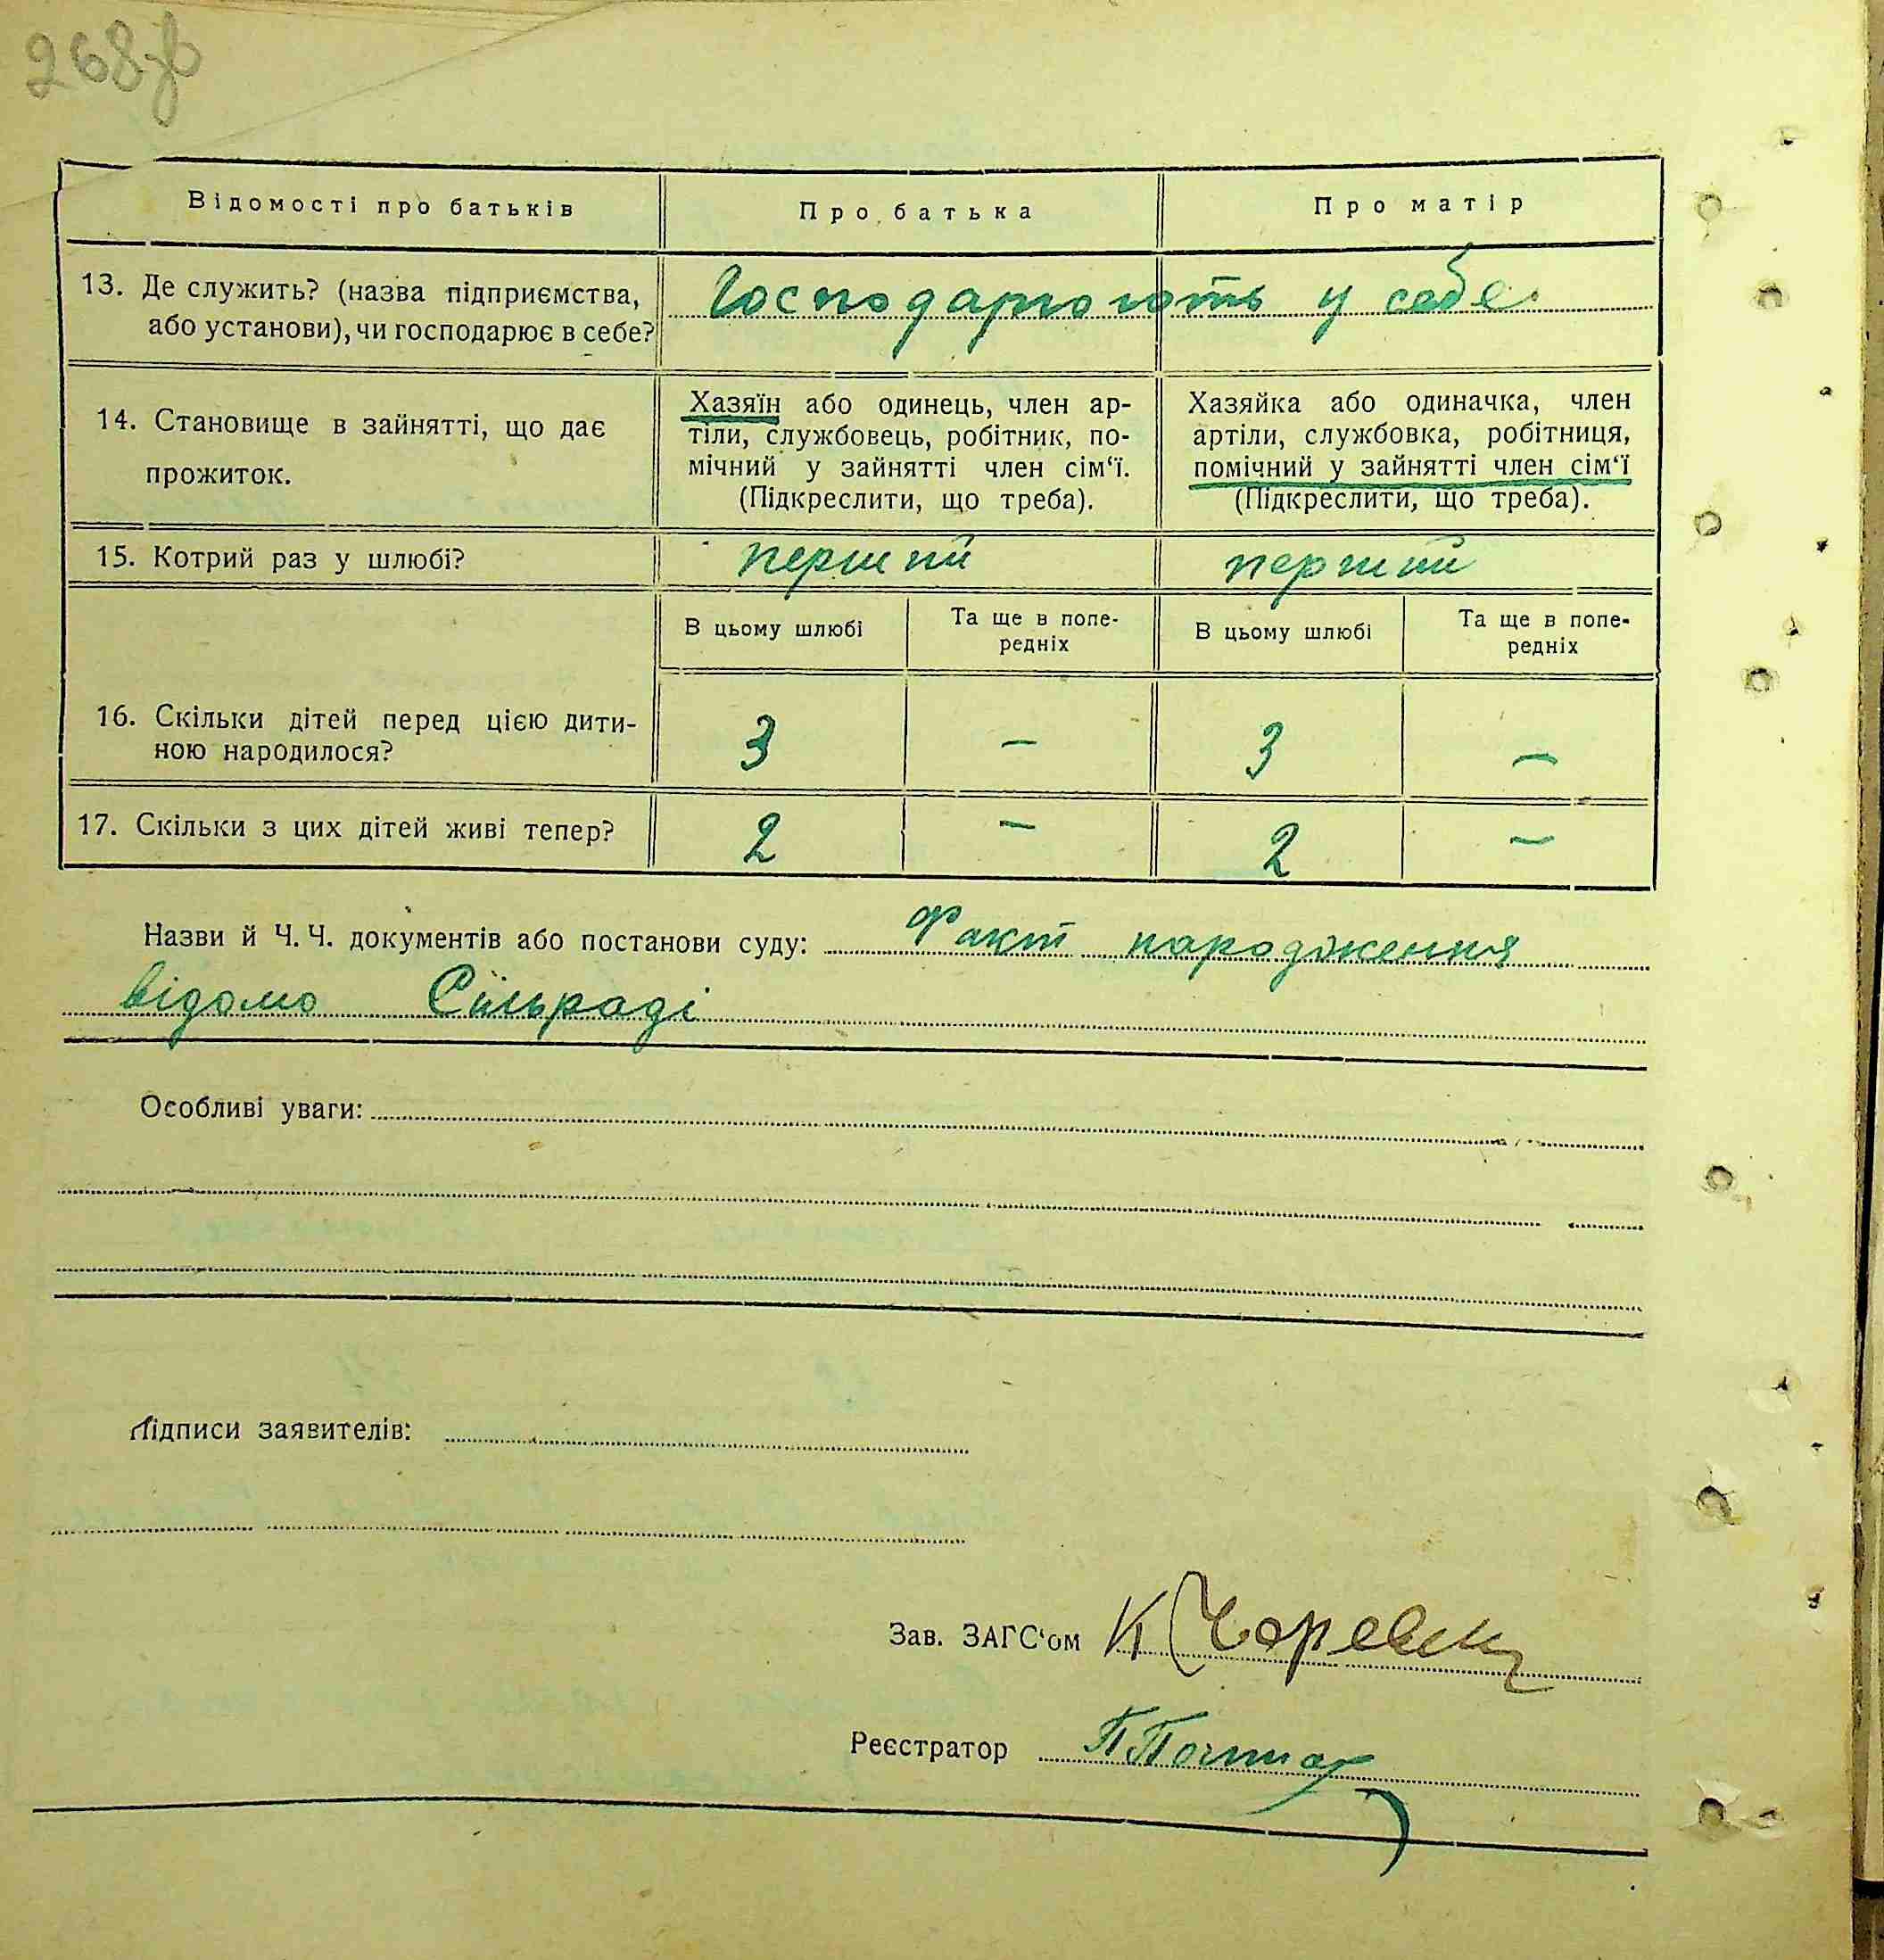 268зв
Відомості про батьків Про батька Про матір
13. Де служить? (назва підприємства, або установи), чи господарює в себе? Господарюють у себе
14. Становище в зайнятті, що дає прожиток.
Хазяїн або одинець, член ар-
тіли, службовець, робітник, по-
мічний у зайнятті член сім‘ї.
(Підкреслити, що треба).
Хазяйка або одиначка, член
артіли, службовка, робітниця,
помічний у зайнятті член сім‘ї
(Підкреслити, що треба).
15. Котрий раз у шлюбі? перший перший
В цьому шлюбі Та ще в попе-редніх В цьому шлюбі Та ще в попе-редніх
16. Скільки дітей перед цією дити-
ною народилося? 3 — 3 —
17. Скільки з цих дітей живі тепер? 2 — 2 —
Назви й Ч. Ч. документів або постанови суду: Факт народження
відомо Сільраді
Особливі уваги:
Підписи заявителів:
Зав. ЗАГС‘ом К
Реєстратор